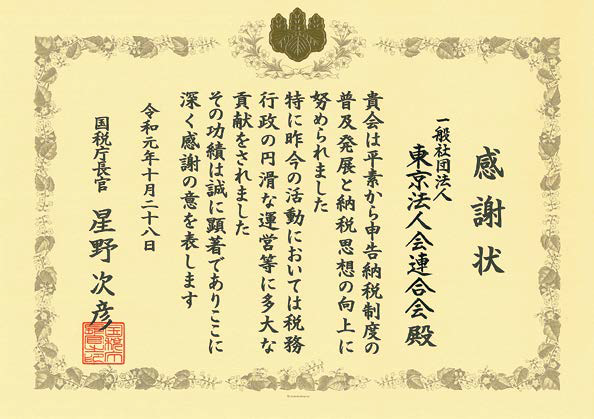 感謝状
一般社団法人
東京法人会連合会 殿
貴会は平素から申告納税制度の
普及発展と納税思想の向上に
努められました
特に昨今の活動においては税務
行政の円滑な運営等に多大な
貢献をされました
その功績は誠に顕著でありここに
深く感謝の意を表します
令和元年十月二十八日
国税庁長官 星野次彦